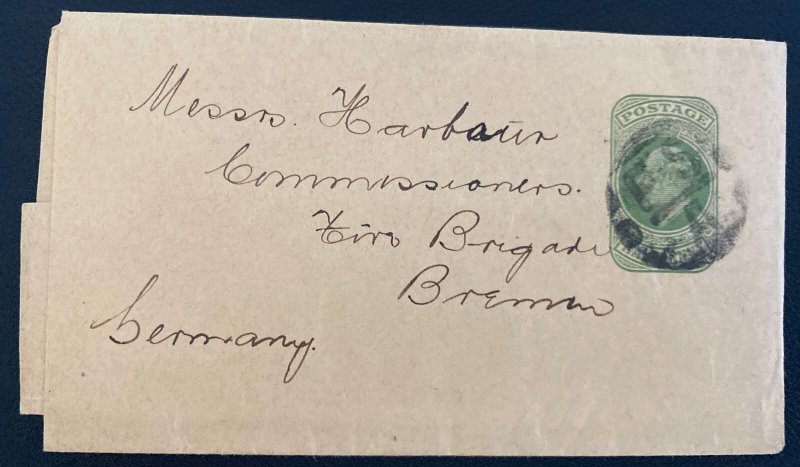 Messrs. Harbour
Commissioners.
Fire Brigade
Bremen
Germany.
POSTAGE